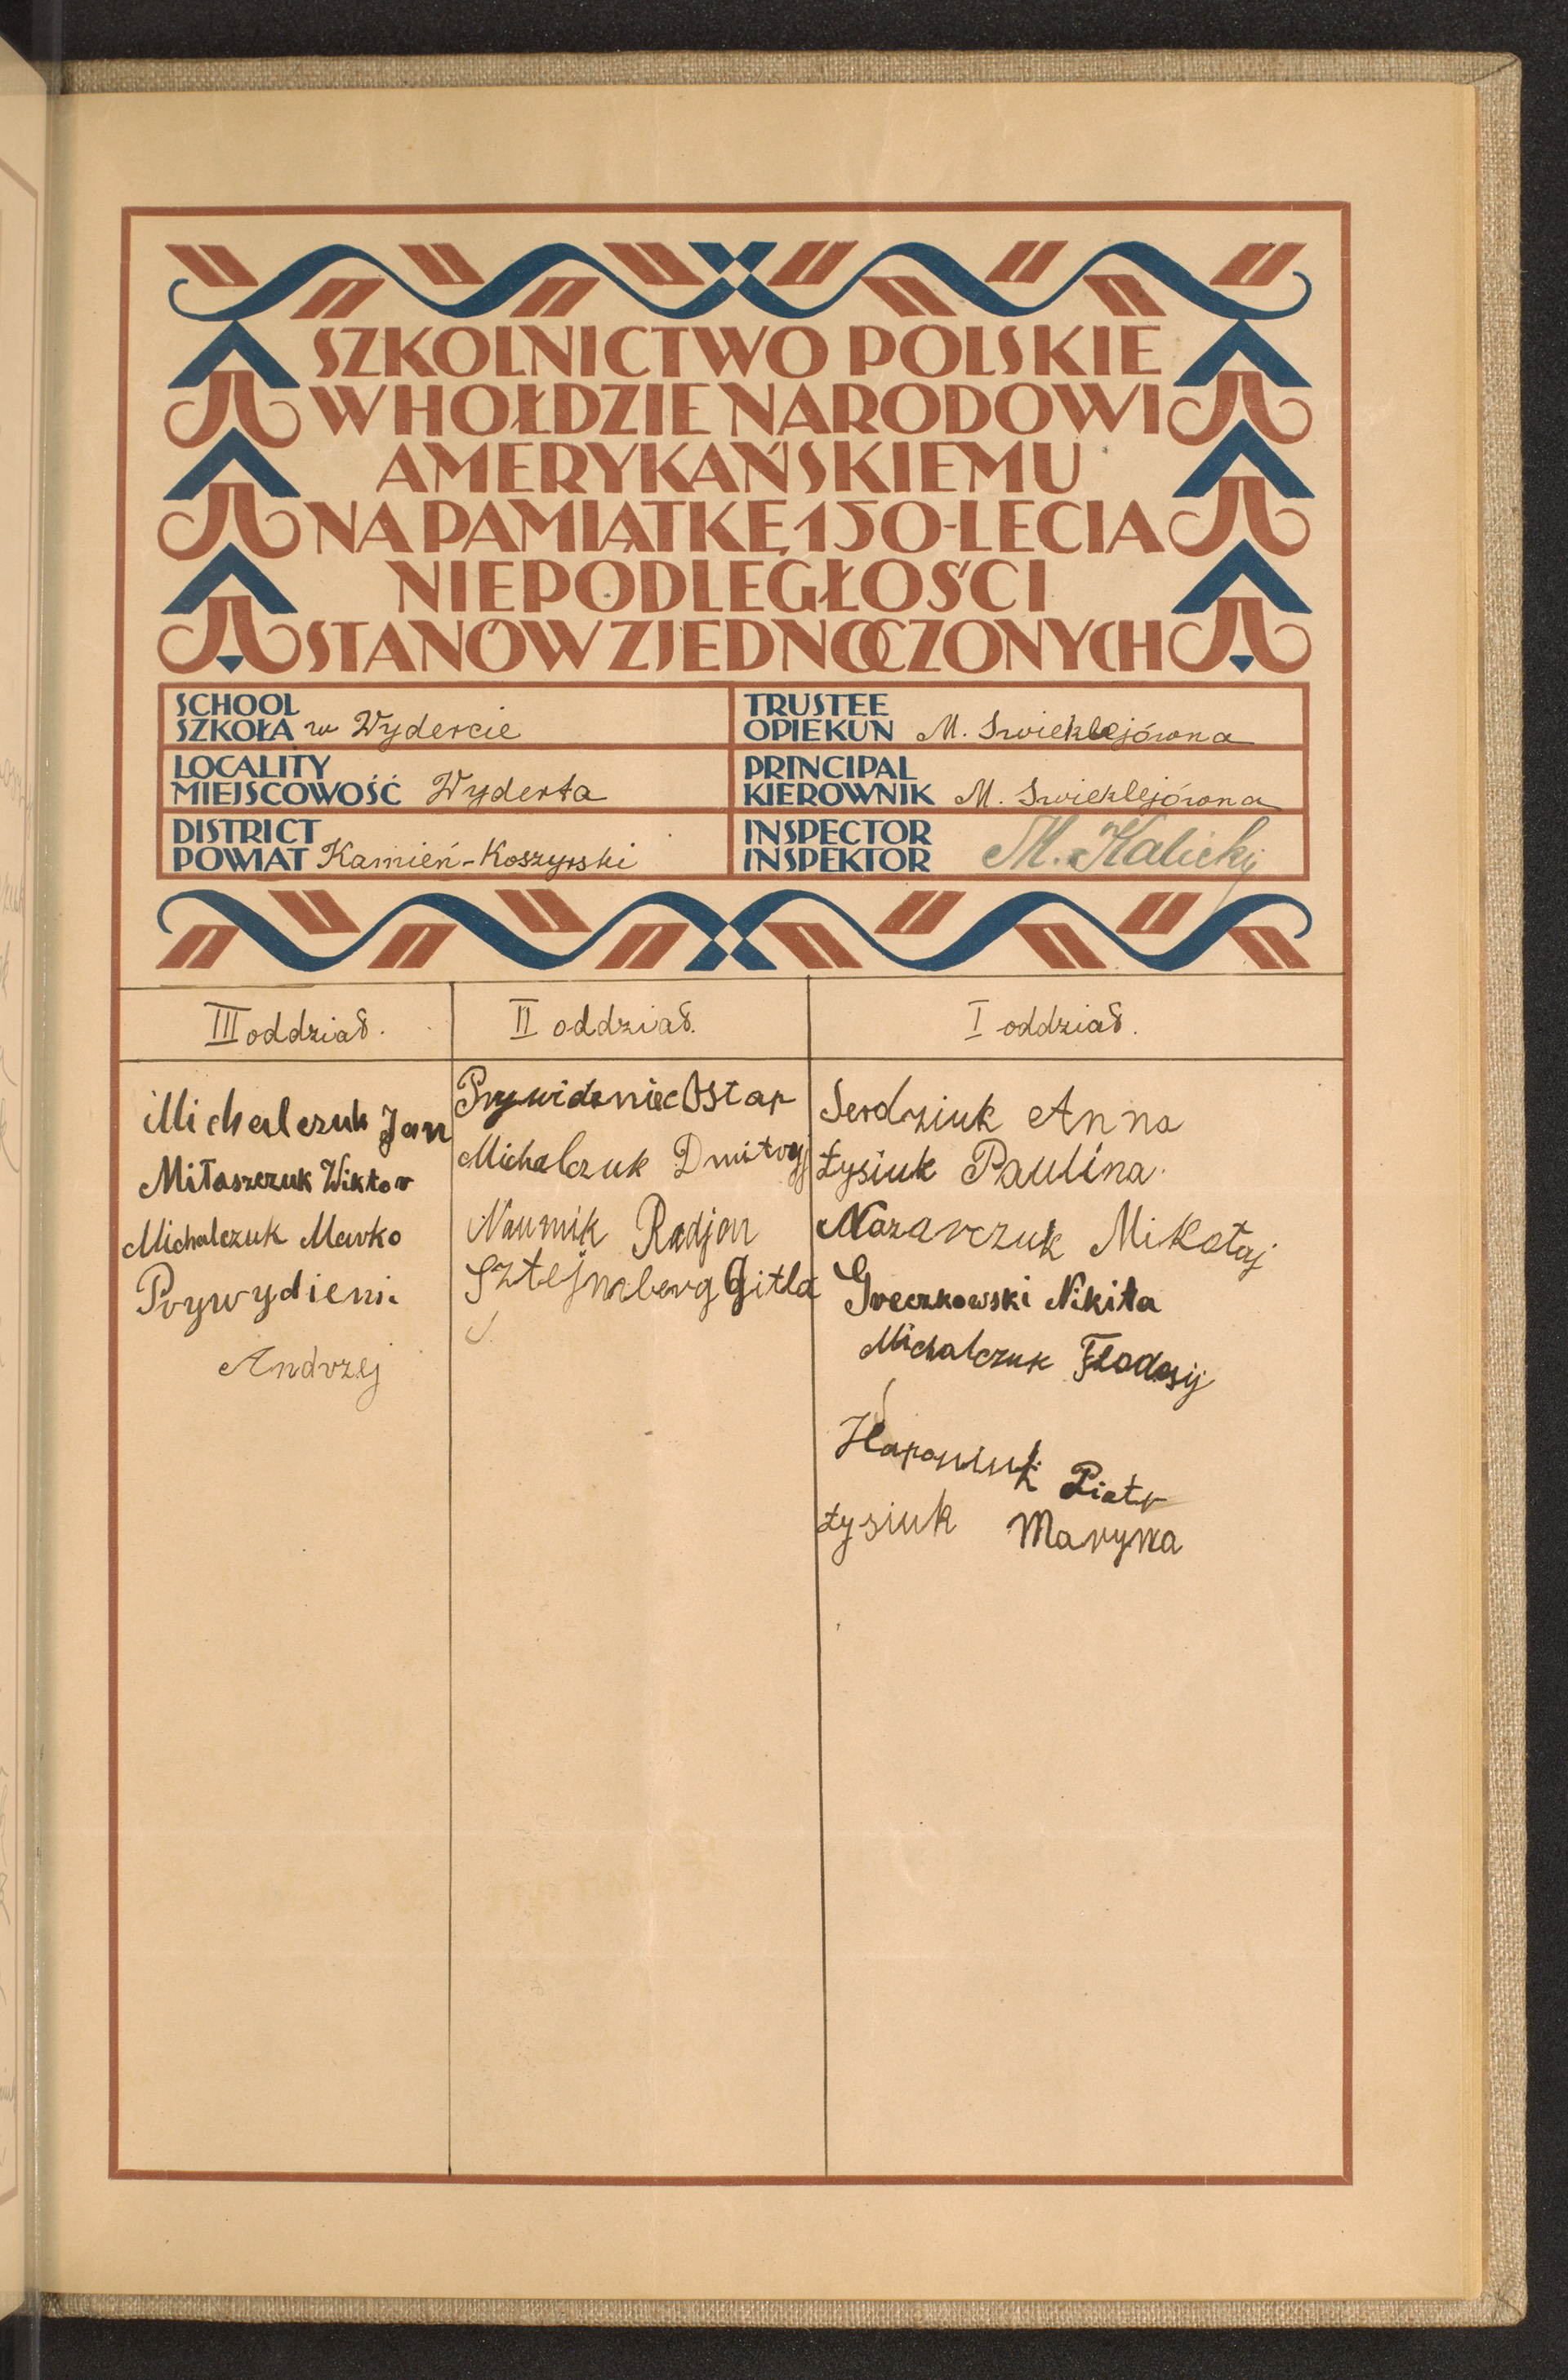 SZKOLNICTWO POLSKIE
W HOŁDZIE NARODOWI
AMERYKAŃSKIEMU
NA PAMIĄTKĘ 150-LECIA
NIEPODLEGŁOŚCI
STANÓW ZJEDNOCZONYCH
SCHOOL
SZKOŁA w Wydercie
TRUSTEE
OPIEKUN M. Swieklejówna
LOCALITY
MIEJSCOWOŚĆ Wyderta
PRINCIPAL
KIEROWNIK M. Swieklejówna
DISTRICT
POWIAT Kamień-Koszyrski
INSPECTOR
INSPEKTOR M. Kalicky
III oddział.
Michalczuk Jan
Miłaszczuk Wiktor
Michalczuk Marko
Prywydieni.
Andrzej
II oddział.
Prywideniec Ostap
Michalczuk Dmitryj
Naumik Radjon
Sztejnberg Gitla
I oddział.
Serdziuk Anna
Łysiuk Paulina.
Nazarczuk Mikołaj
Greczkowski Nikita
Michalczuk Fłodosij
Haponiuk Piotr
Łysiuk Maryna